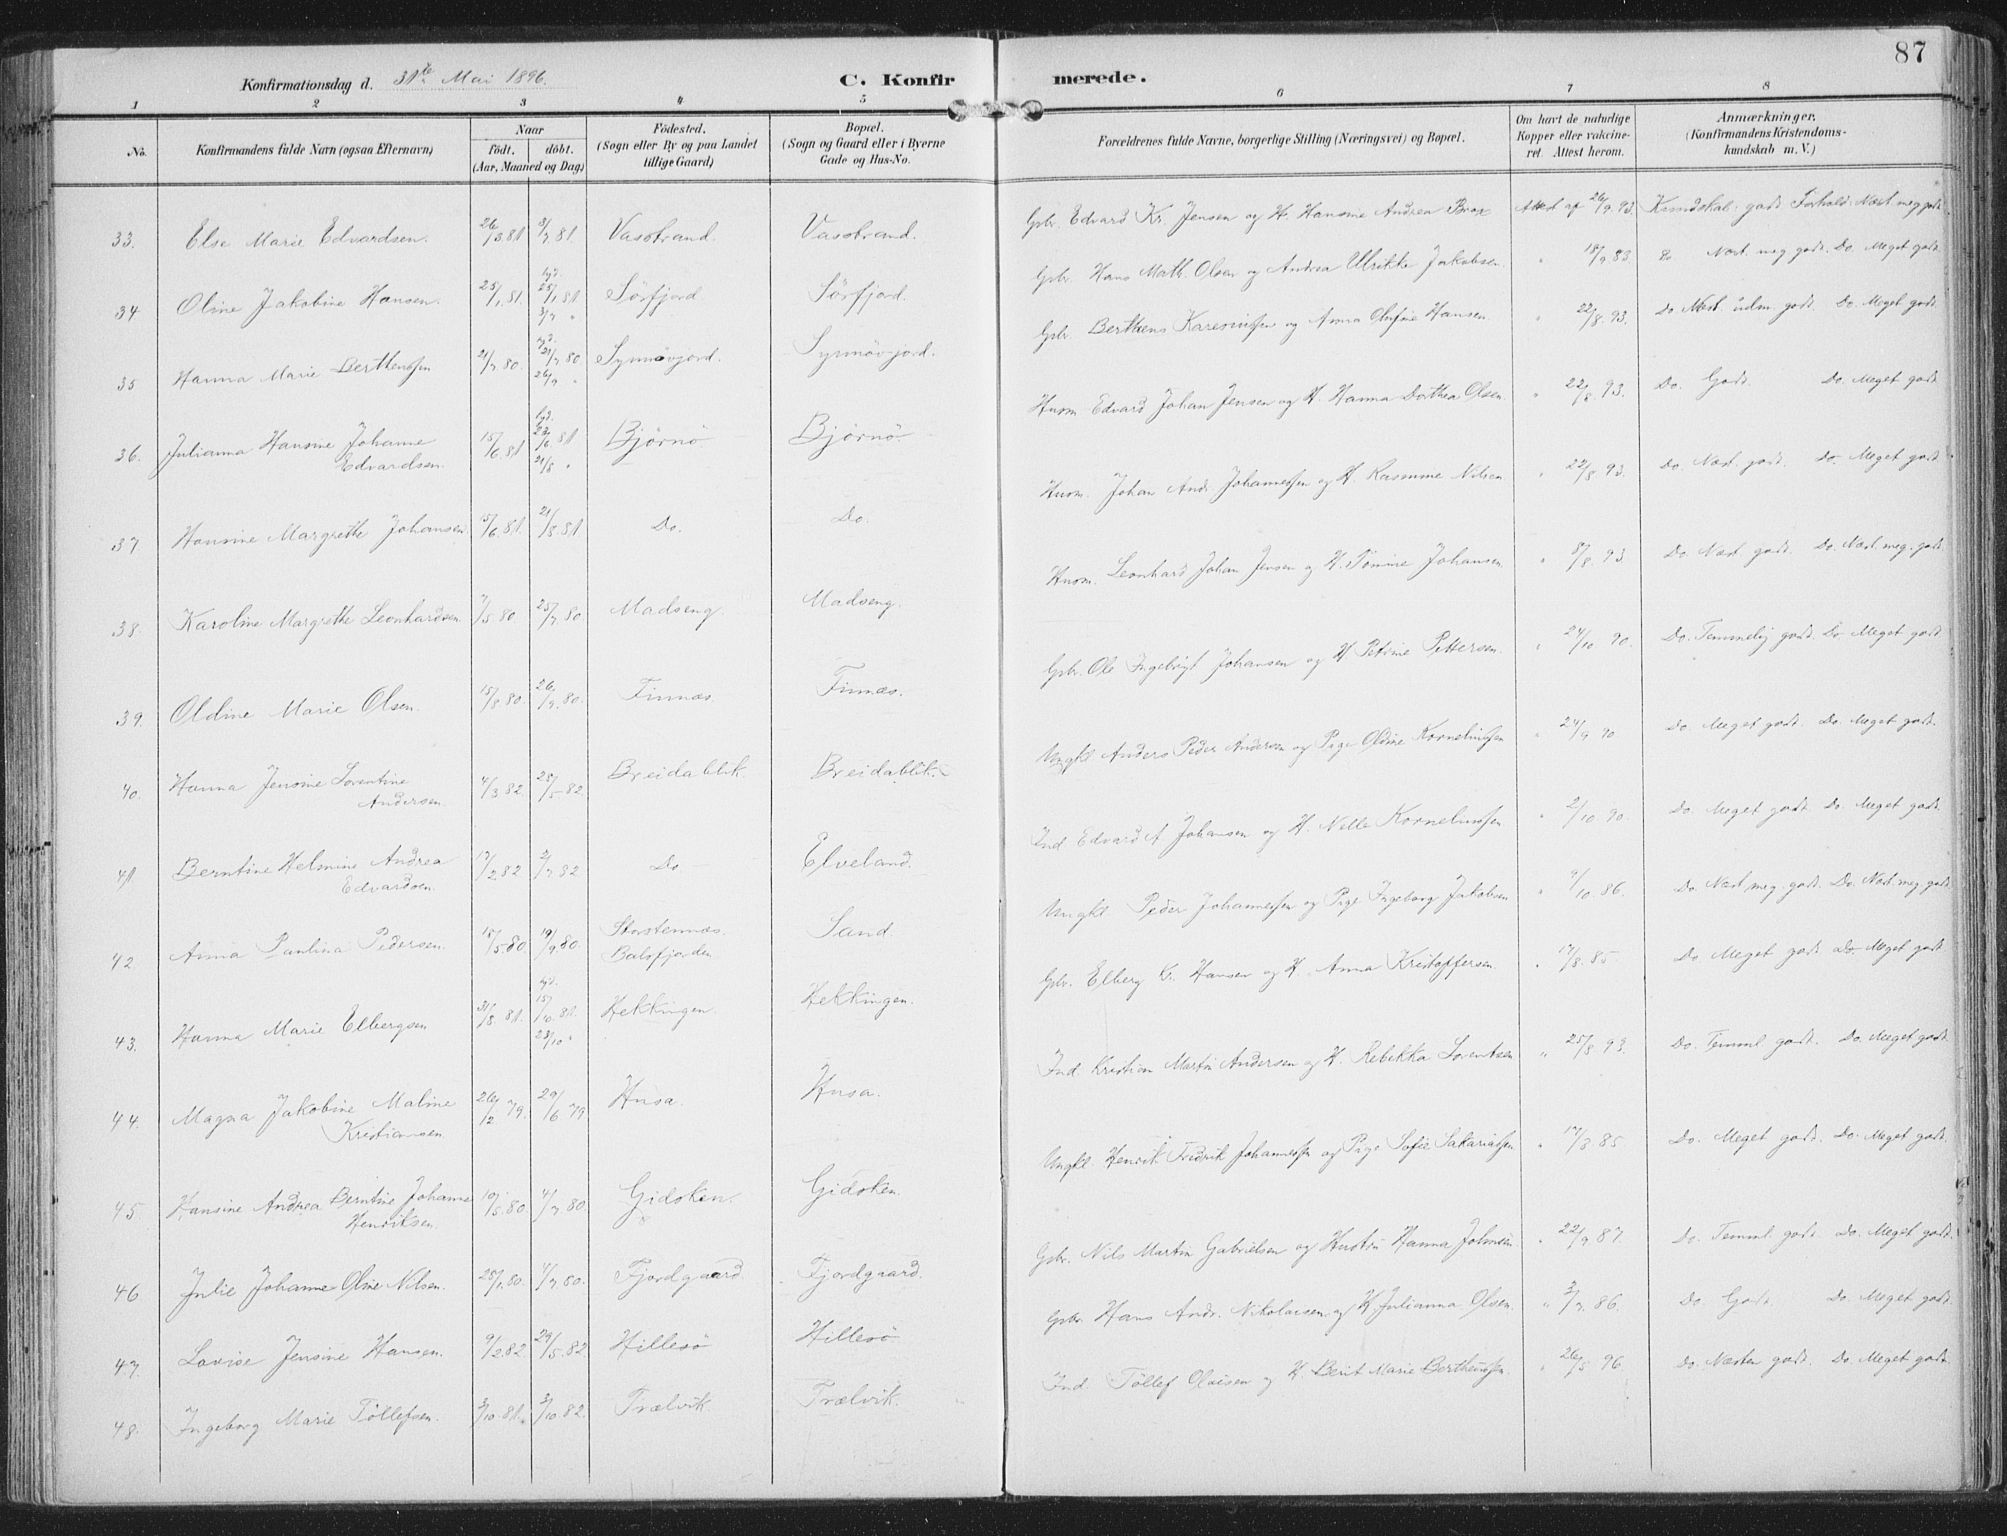 87
Konfirmationsdag d. 31te Mai 1896.
C. Konfirmerede.
1 2 3 4 5 6 7 8
No. Konfirmandens fulde Navn (ogsaa Efternavn) Naar født. døbt. (Aar, Maaned og Dag) Fødested. (Sogn eller By og paa Landet tillige Gaard) Bopæl. (Sogn og Gaard eller i Byerne Gade og Hus-No. Forældrenes fulde Navne, borgerlige Stilling (Næringsvei) og Bopæl. Om havt de naturlige Kopper eller vakcineret. Attest herom. Anmærkninger. (Konfirmandens Kristendomskundskab m. V.)
33. Else Marie Edvardsen. 26/3.81 3/7 81. Vasstrand. Vasstrand. Gbr. Edvard Kr. Jensen og H. Hansine Andrea Brox Attest af 26/9.93. Kundskab. godt Forhold: Næst meg godt
34 Oline Jakobine Hansen. 25/1.81. hjd. 25/1 81 3/7 " Sörfjord Sörfjord. Gbr. Hans Math. Olsen og Andrea Ulrikke Jakobsen. " 18/9 83 Do Næst meg godt. Do Meget godt.
35 Hanna Marie Berthenssen 21/7.80. hjd. 21/7 80 26/9 " Synnövjord. Synnövjord. Gbr. Berthens Kareniussen og Anna Olufine Hansen. " 22/8.93. Do Næst. üdm. godt Do. Meget godt.
36. Julianna Hansine Johanne Edvardsen. 15/6.81 hjd. 22/6 81 21/8 " Bjørnö Bjørnö. Husm. Edvard Johan Jensen og H. Hanna Dorthea Olsen. " 22/8 93. Do. Godt. Do. Meget godt
37. Hansine Margrethe Johansen. 15/6.81. 21/8.81 Do. Do. Husm. Johan Andr. Johannessen og H. Rasmine Nilsen " 22/8 93. Do. Næst godt. Do Meget godt
38. Karoline Margrethe Leonhardsen. 7/5 80 25/7 80 Madseng. Madseng. Husm. Leonhard Johan Jensen og H. Tomine Johansen. " 8/8.93 Do Næst godt. Do. Næst. meg. godt.
39. Oldine Marie Olsen. 15/8 80. 26/9.80. Finnæs. Finnæs. Gbr. Ole Ingebrigt Johansen og H. Petrine Pettersen. " 24/10 90. Do. Temmelig godt. Do Meget godt
40. Hanna Jensine Lorentine Andersen. 4/3 82. 28/5 82. Breidablik. Breidablik. Ungkl Anders Peder Andersen og Pige Oldine Korneliussen " 24/9 90 Do. Meget godt. Do. Meget godt.
41 Berntine Helmine Andrea Edvardsen. 17/2 82 2/7 82 Do Elveland. Ind Edvard A Johansen og H. Nelle Korneliussen " 2/10 90. Do. Meget godt Do. Meget godt.
42 Anna Paulina Pedersen. 18/5 80. 19/9 80. Storstennæs. Balsfjorden Sand. Ungkl. Peder Johannessen og Pige Ingeborg Jakobsen " 9/10.86. Do. Næst meg. godt. Do. Næst. meg godt.
43. Hanna Marie Elbergsen 31/8 81. hjd. 15/10.81. 23/10 " Hekkingen. Hekkingen. Gbr. Elberg Kr. Hansen og H. Anna Kristoffersen. " 17/8.85 Do Meget godt Do Meget godt.
44. Magna Jakobine Maline Kristiansen 26/2 79. 29/6 79 Husa. Husa. Ind. Kristian Martin Andersen og H. Rebekka Lorentsen " 25/8 93. Do. Temml. godt. Do. Meget godt
45. Hansine Andrea Berntine Johanne Henriksen. 10/5.80 4/7 80. Gidsken. Gidsken. Ungkl. Henrik Fredrik Johannessen og Pige Sofie Sakariassen " 17/8 85 Do. Meget godt. Do. Meget godt.
46 Julie Johanne Oline Nilsen. 28/1.80. 4/7 80. Fjordgaard Fjordgaard. Gbr. Nils Martin Gabrielsen og Hustru Hanna Johnsen. " 22/9 87. Do. Temml. godt. Do. Meget godt.
47. Lovise Jensine Hansen. 9/2.82. 29/5.82. Hillesö Hillesö Gbr. Hans Andr. Nikolaisen og H. Julianna Olsen. " 3/7.86. Do. Godt. Do. Meget godt.
48. Ingeborg Marie Töllefsen. 3/10.81. 3/10.82. Trælvik. Trælvik. Ind. Töllef Olaisen og H. Berit Marie Berthenssen. " 26/5 96. Do. Næsten godt. Do. Meget godt.